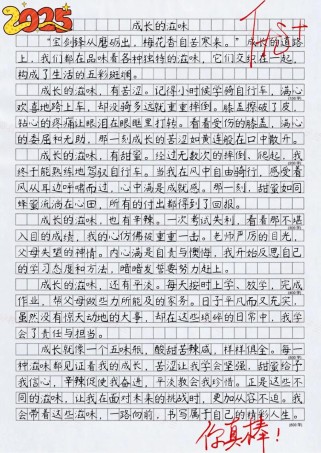 2025
成长的滋味
"宝剑锋从磨砺出，梅花香自苦寒来。"成长的道路
上，我们都在品味着各种独特的滋味，它们交织在一起，
构成了生活的五彩斑斓。
成长的滋味，有苦涩。记得小时候学骑自行车，满心
欢喜地跨上车，却没骑多远就重重摔倒。膝盖擦破了皮，
钻心的疼痛让眼泪在眼眶里打转。看着受伤的膝盖，满心
的委屈和无助，那一刻成长的苦涩如黄连般在口中散开。
成长的滋味，有甜蜜。经过无数次的摔倒、爬起，我
终于能熟练地驾驭自行车。当我在风中自由骑行，感受着
风从耳边呼啸而过，心中满是成就感。那一刻，甜蜜如同
蜂蜜流淌在心田，所有的付出都得到了回报。
成长的滋味，也有辛辣。一次考试失利，看着那不堪
入目的成绩，我的心仿佛被重重一击。老师严厉的目光，
父母失望的神情，内心满是自责与懊悔，我开始反思自己
的学习态度和方法，暗暗发誓要努力赶上。
成长的滋味，还有平淡。每天按时上学、放学，完成
作业，帮父母做些力所能及的家务。日子平凡而又充实，
虽然没有惊天动地的大事，却在这些琐碎的日常中，我学
会了责任与担当。
成长就像一个五味瓶，酸甜苦辣咸，样样俱全。每一
种滋味都见证着我的成长，苦涩让我学会坚强，甜蜜给予
我信心，辛辣促使我奋进，平淡教会我珍惜。正是这些不
同的滋味，让我在面对未来的挑战时，更加从容不迫。我
会带着这些滋味，一路向前，书写属于自己的精彩人生。
你真棒！